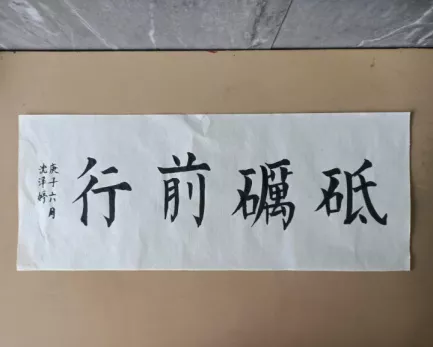 砥礪前行
庚子六月
沈泽婷